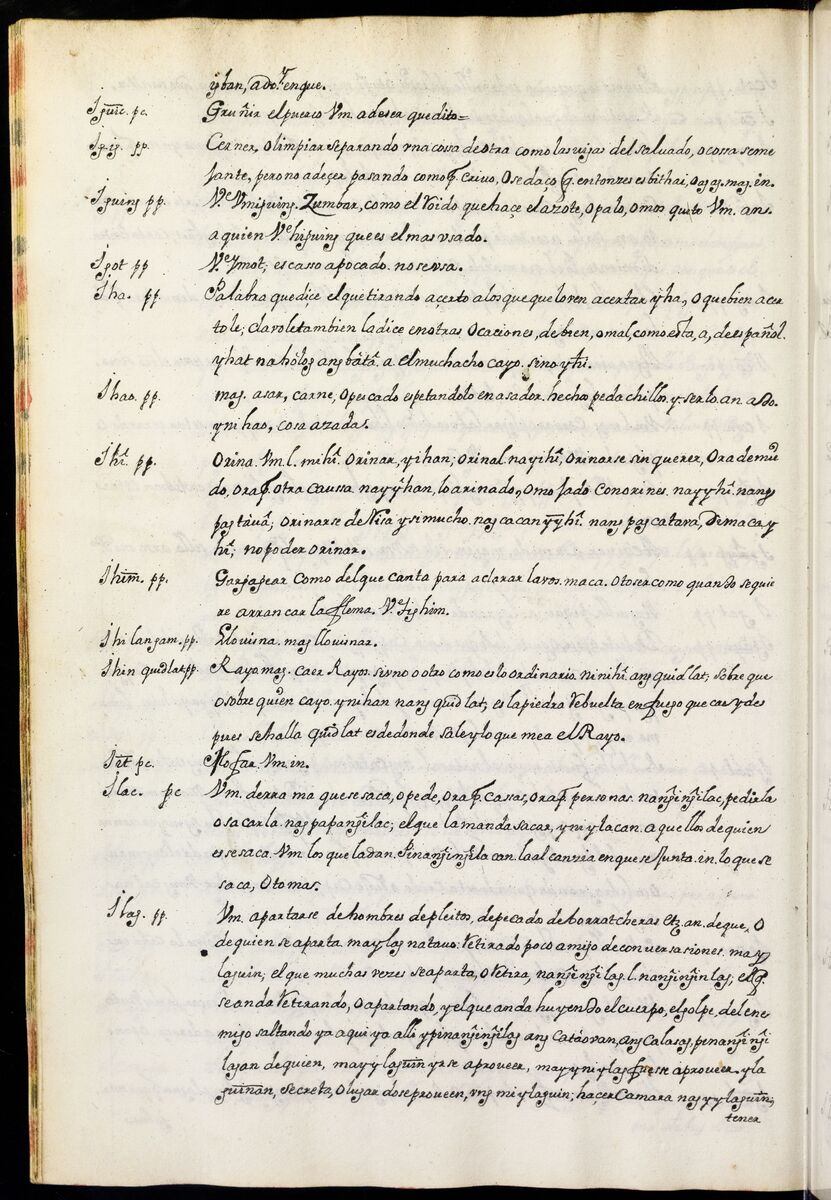 yban, ado.r enque.
Iguic. pc. Gruñir el puerco Vm. adeser quedito=
Igig. pp. Cerner, olimpiar separando vna cosa de otra como las uijas del saluado, o cossa seme
jante, pero no adeçer pasando como p. criuo, o sedaço q. entonzes es bithai, o agag. mag. in.
Iguing pp. V.e Vmiguing. Zumbar, como el Roido que haçe el azote, o palo, o mosquito Vm. an.
a quien V.e higuing que es el mas vsado.
Igot pp V.e ymot; escasso apocado. no se vsa.
Iha. pp. Palabra que dice el que tirando açerto a los que quelo ven acertar yha, o que bien acer
tole; claro le tambien la dice en otras ocaciones, de bien, o mal, como esta, a, de español.
yhat na hólog ang bátà. a el muchacho cayo. sino yhî.
Ihao. pp. mag. asar, carne, o pescado espetandolo en asador. hecho pedachillos. y ser lo. an. ado.
ynihao, cosa azada.
Ihî. pp. orina. Vm. l. mihî. orinar, yihan; orinal. nayihî, orinarse sin querer, ora de mie
do, ora p. otra caussa. nayyhan, lo orinado, o mojado con orines. nayyhî. nang
pagtáuâ; orinarse de Risa y si mucho. nagcacanyyhî. nang pagcataua, Dimacay
hî; no poder orinar.
Ihim. pp. Gargagear como del que canta para aclarar la vos. maca. o toser como quando se quie
re arrancar la flema. V.e Tighim.
Ihilangam. pp. Llouisna. mag llouisnar.
Ihin quidlat. pp. Rayo. mag. caer Rayos. sino o otro como es lo ordinario. ninihî. ang quidlat; sobre que
o sobre quien cayo. ynihan nang quidlat; es la piedra Rebuelta en fuego que cae y des
pues se halla quidlat es de donde sale y lo que mea el Rayo.
Iit pc. Mofar. Vm. in.
Ilac. pc Vm. derrama que se saca, o pede, ora p. cassas, ora p. personas. nangingilac, pedirla
o sacarla. nag papangilac; el que la manda sacar, yniylacan. aquellos de quien
es se saca. Vm. los que la dan. Pinangingila can. la alcanzia en que se Junta. in. lo que se
saca, o tomas.
Ilag. pp. Vm. apartarse de hombres de pleitos, de pecado de borratcheras etz. an. de que, o
de quien se aparta. maylag na tauo: Retirado poco amigo de conversaciones. may
laguin; el que muchas vezes se aparta, o Retira, nangingilag. l. nanginginlag; el q.
se anda Retirando, o apartando, y el que anda huyendo el cuerpo, el golpe, del ene
migo saltando ya aqui ya alli ypinangingilag ang catáouan, ang calasag, penangingi
lagan de quien, mayylaguin yrse aproveer, mayyniylag fuese aproveer. yla
guinan, secreta, o lugar dose proveen, vng miylaguin; haçer Camara nagyylaguin;
tener